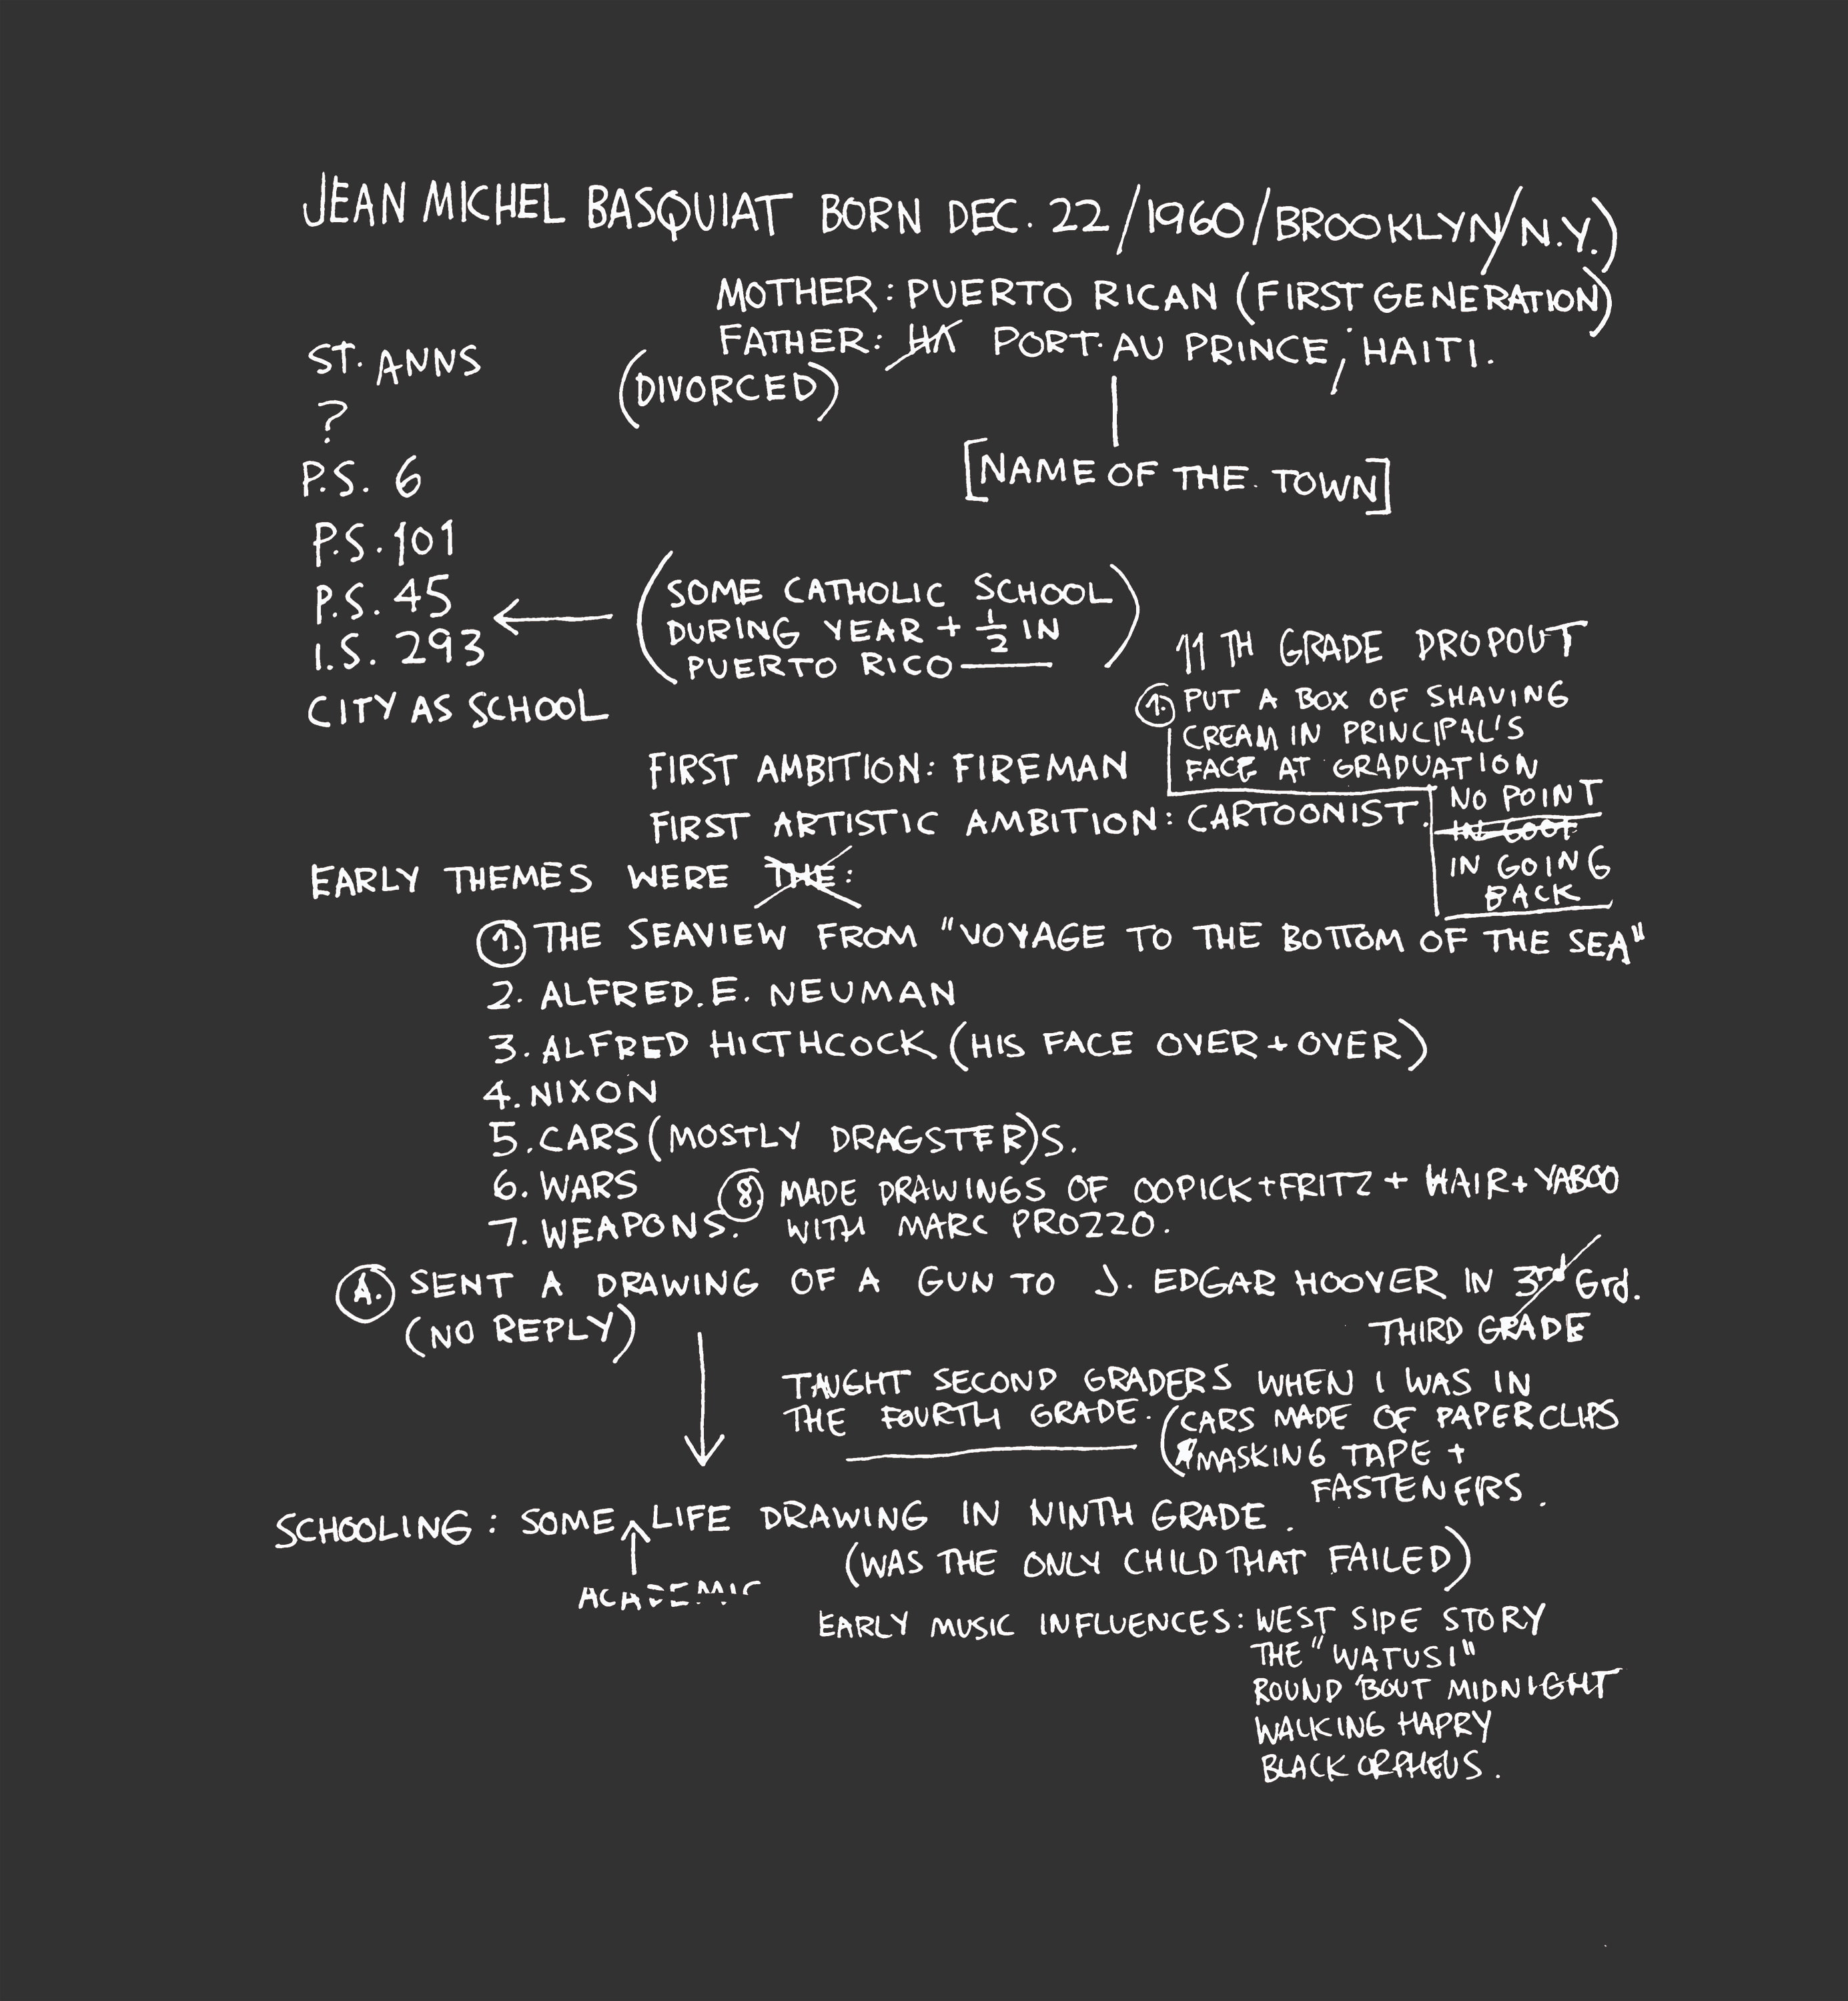 JEAN MICHEL BASQUIAT BORN DEC. 22/1960/BROOKLYN/N.Y.)
MOTHER: PUERTO RICAN (FIRST GENERATION)
FATHER: PORT. AU PRINCE, HAITI.
(DIVORCED)
[NAME OF THE. TOWN]
ST. ANNS
?
P.S. 6
P.S. 101
P.S. 45
I.S. 293
CITY AS SCHOOL
(SOME CATHOLIC SCHOOL
DURING YEAR + 1/2 IN
PUERTO RICO)
11 TH GRADE DROPOUT
1. PUT A BOX OF SHAVING
CREAM IN PRINCIPAL'S
FACE AT GRADUATION
NO POINT
IN GOING
BACK
FIRST AMBITION: FIREMAN
FIRST ARTISTIC AMBITION: CARTOONIST.
EARLY THEMES WERE THE:
1. THE SEAVIEW FROM "VOYAGE TO THE BOTTOM OF THE SEA"
2. ALFRED. E. NEUMAN
3. ALFRED HICTHCOCK (HIS FACE OVER + OVER)
4. NIXON
5. CARS (MOSTLY DRAGSTER)S.
6. WARS
7. WEAPONS.
8. MADE DRAWINGS OF OOPICK + FRITZ + HAIR + YABOO
WITH MARC PROZZO.
A. SENT A DRAWING OF A GUN TO J. EDGAR HOOVER IN 3rd Grd.
(NO REPLY)
THIRD GRADE
TAUGHT SECOND GRADERS WHEN I WAS IN
THE FOURTH GRADE. (CARS MADE OF PAPERCLIPS
MASKING TAPE +
FASTENERS.
SCHOOLING: SOME LIFE DRAWING IN NINTH GRADE.
ACADEMIC
(WAS THE ONLY CHILD THAT FAILED)
EARLY MUSIC INFLUENCES: WEST SIPE STORY
THE "WATUSI"
ROUND 'BOUT MIDNIGHT
WALKING HAPPY
BLACK ORPHEUS.